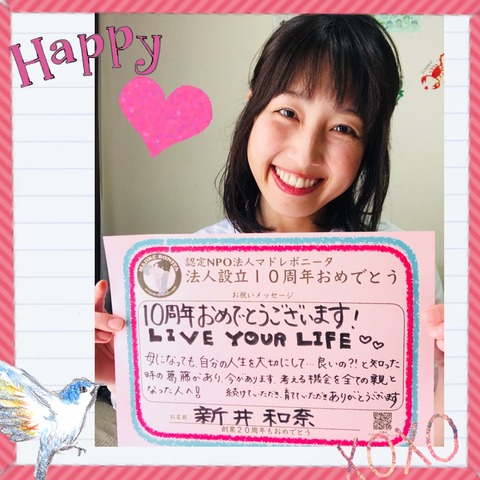 Happy
MADRE BONITA
認定NPO法人マドレボニータ
法人設立10周年おめでとう
お祝いメッセージ
10周年おめでとうございます!
LIVE YOUR LIFE ♡♡
母になっても、自分の人生を大切にして…良いの?!と知った
時の葛藤があり、今があります。考える機会を全ての親と
なった人へ! 続けていただき、育てていただきありがとうございます
お名前 新井和奈
創業20周年もおめでとう
XOXO